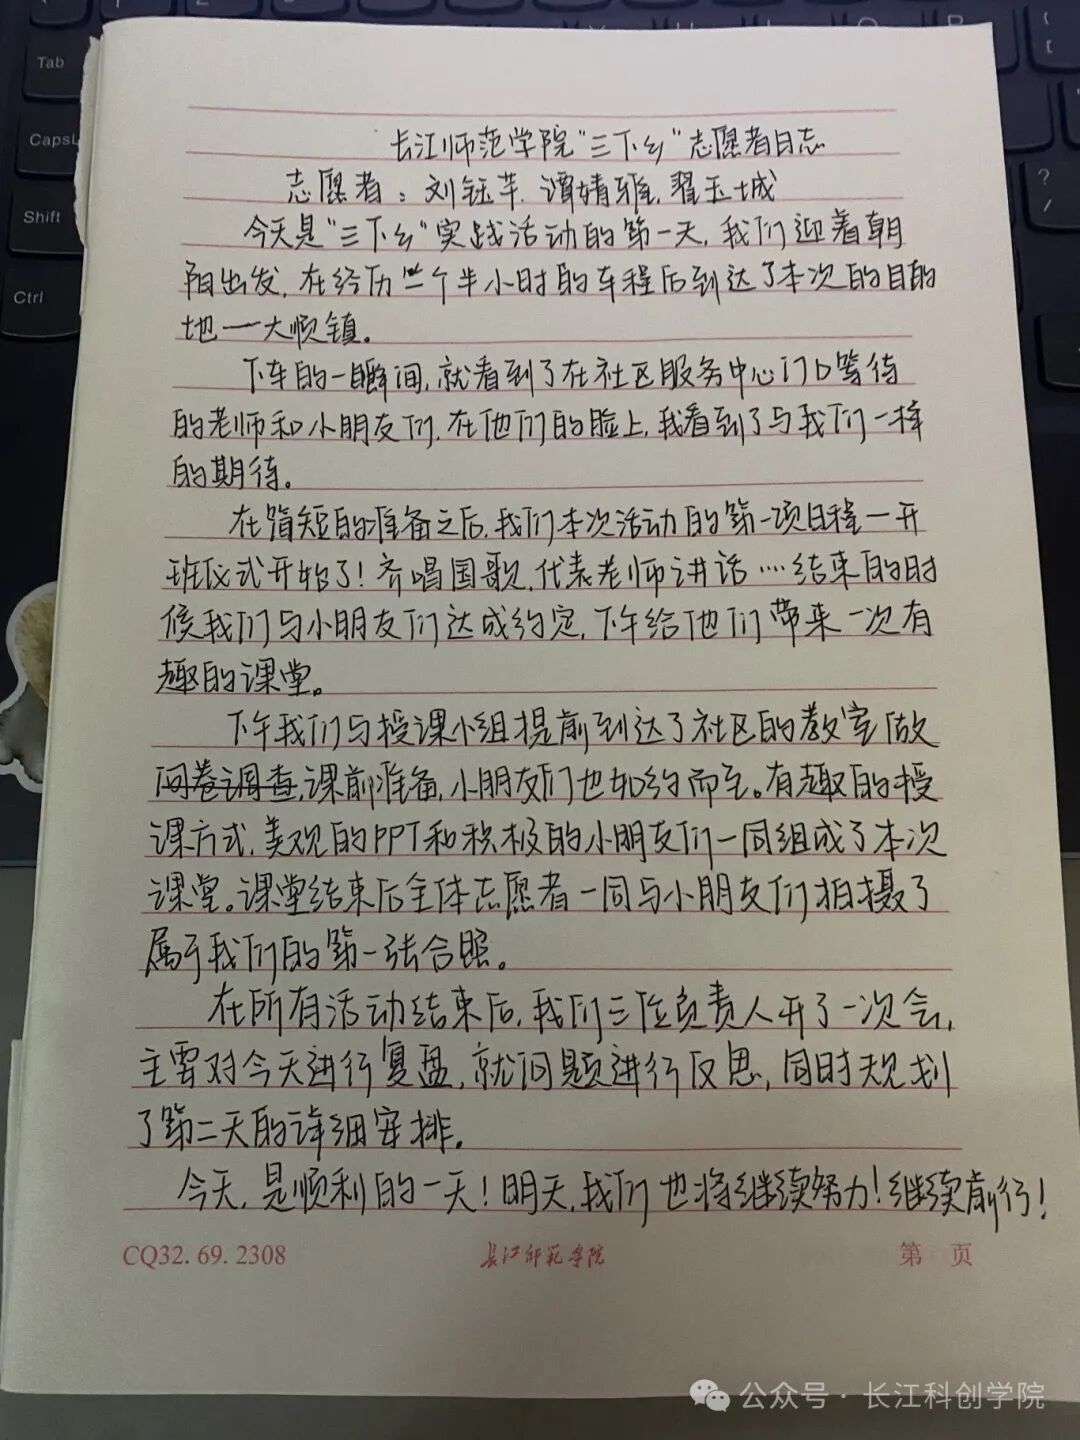 Tab
CapsL
Shift
Ctrl
长江师范学院“三下乡”志愿者日志
志愿者：刘钰芊.谭婧雅,翟玉城
今天是“三下乡”实践活动的第一天,我们迎着朝
阳出发,在经历一个半小时的车程后到达了本次的目的
地一大顺镇。
下车的一瞬间,就看到了在社区服务中心门口等待
的老师和小朋友们,在他们的脸上,我看到了与我们一样
的期待。
在简短的准备之后,我们本次活动的第一项日程一开
班仪式开始了！齐唱国歌,代表老师讲话……结束的时
候我们与小朋友们达成约定,下午给他们带来一次有
趣的课堂。
下午我们与授课小组提前到达了社区的教室做
问卷调查,课前准备,小朋友们也如约而至。有趣的授
课方式,美观的PPT和积极的小朋友们一同组成了本次
课堂。课堂结束后全体志愿者一同与小朋友们拍摄了
属于我们的第一张合照。
在所有活动结束后,我们三位负责人开了一次会,
主要对今天进行复盘,就问题进行反思,同时规划
了第二天的详细安排。
今天,是顺利的一天！明天,我们也将继续努力！继续前行！
CQ32.69.2308 长江师范学院 第 页
公众号·长江科创学院